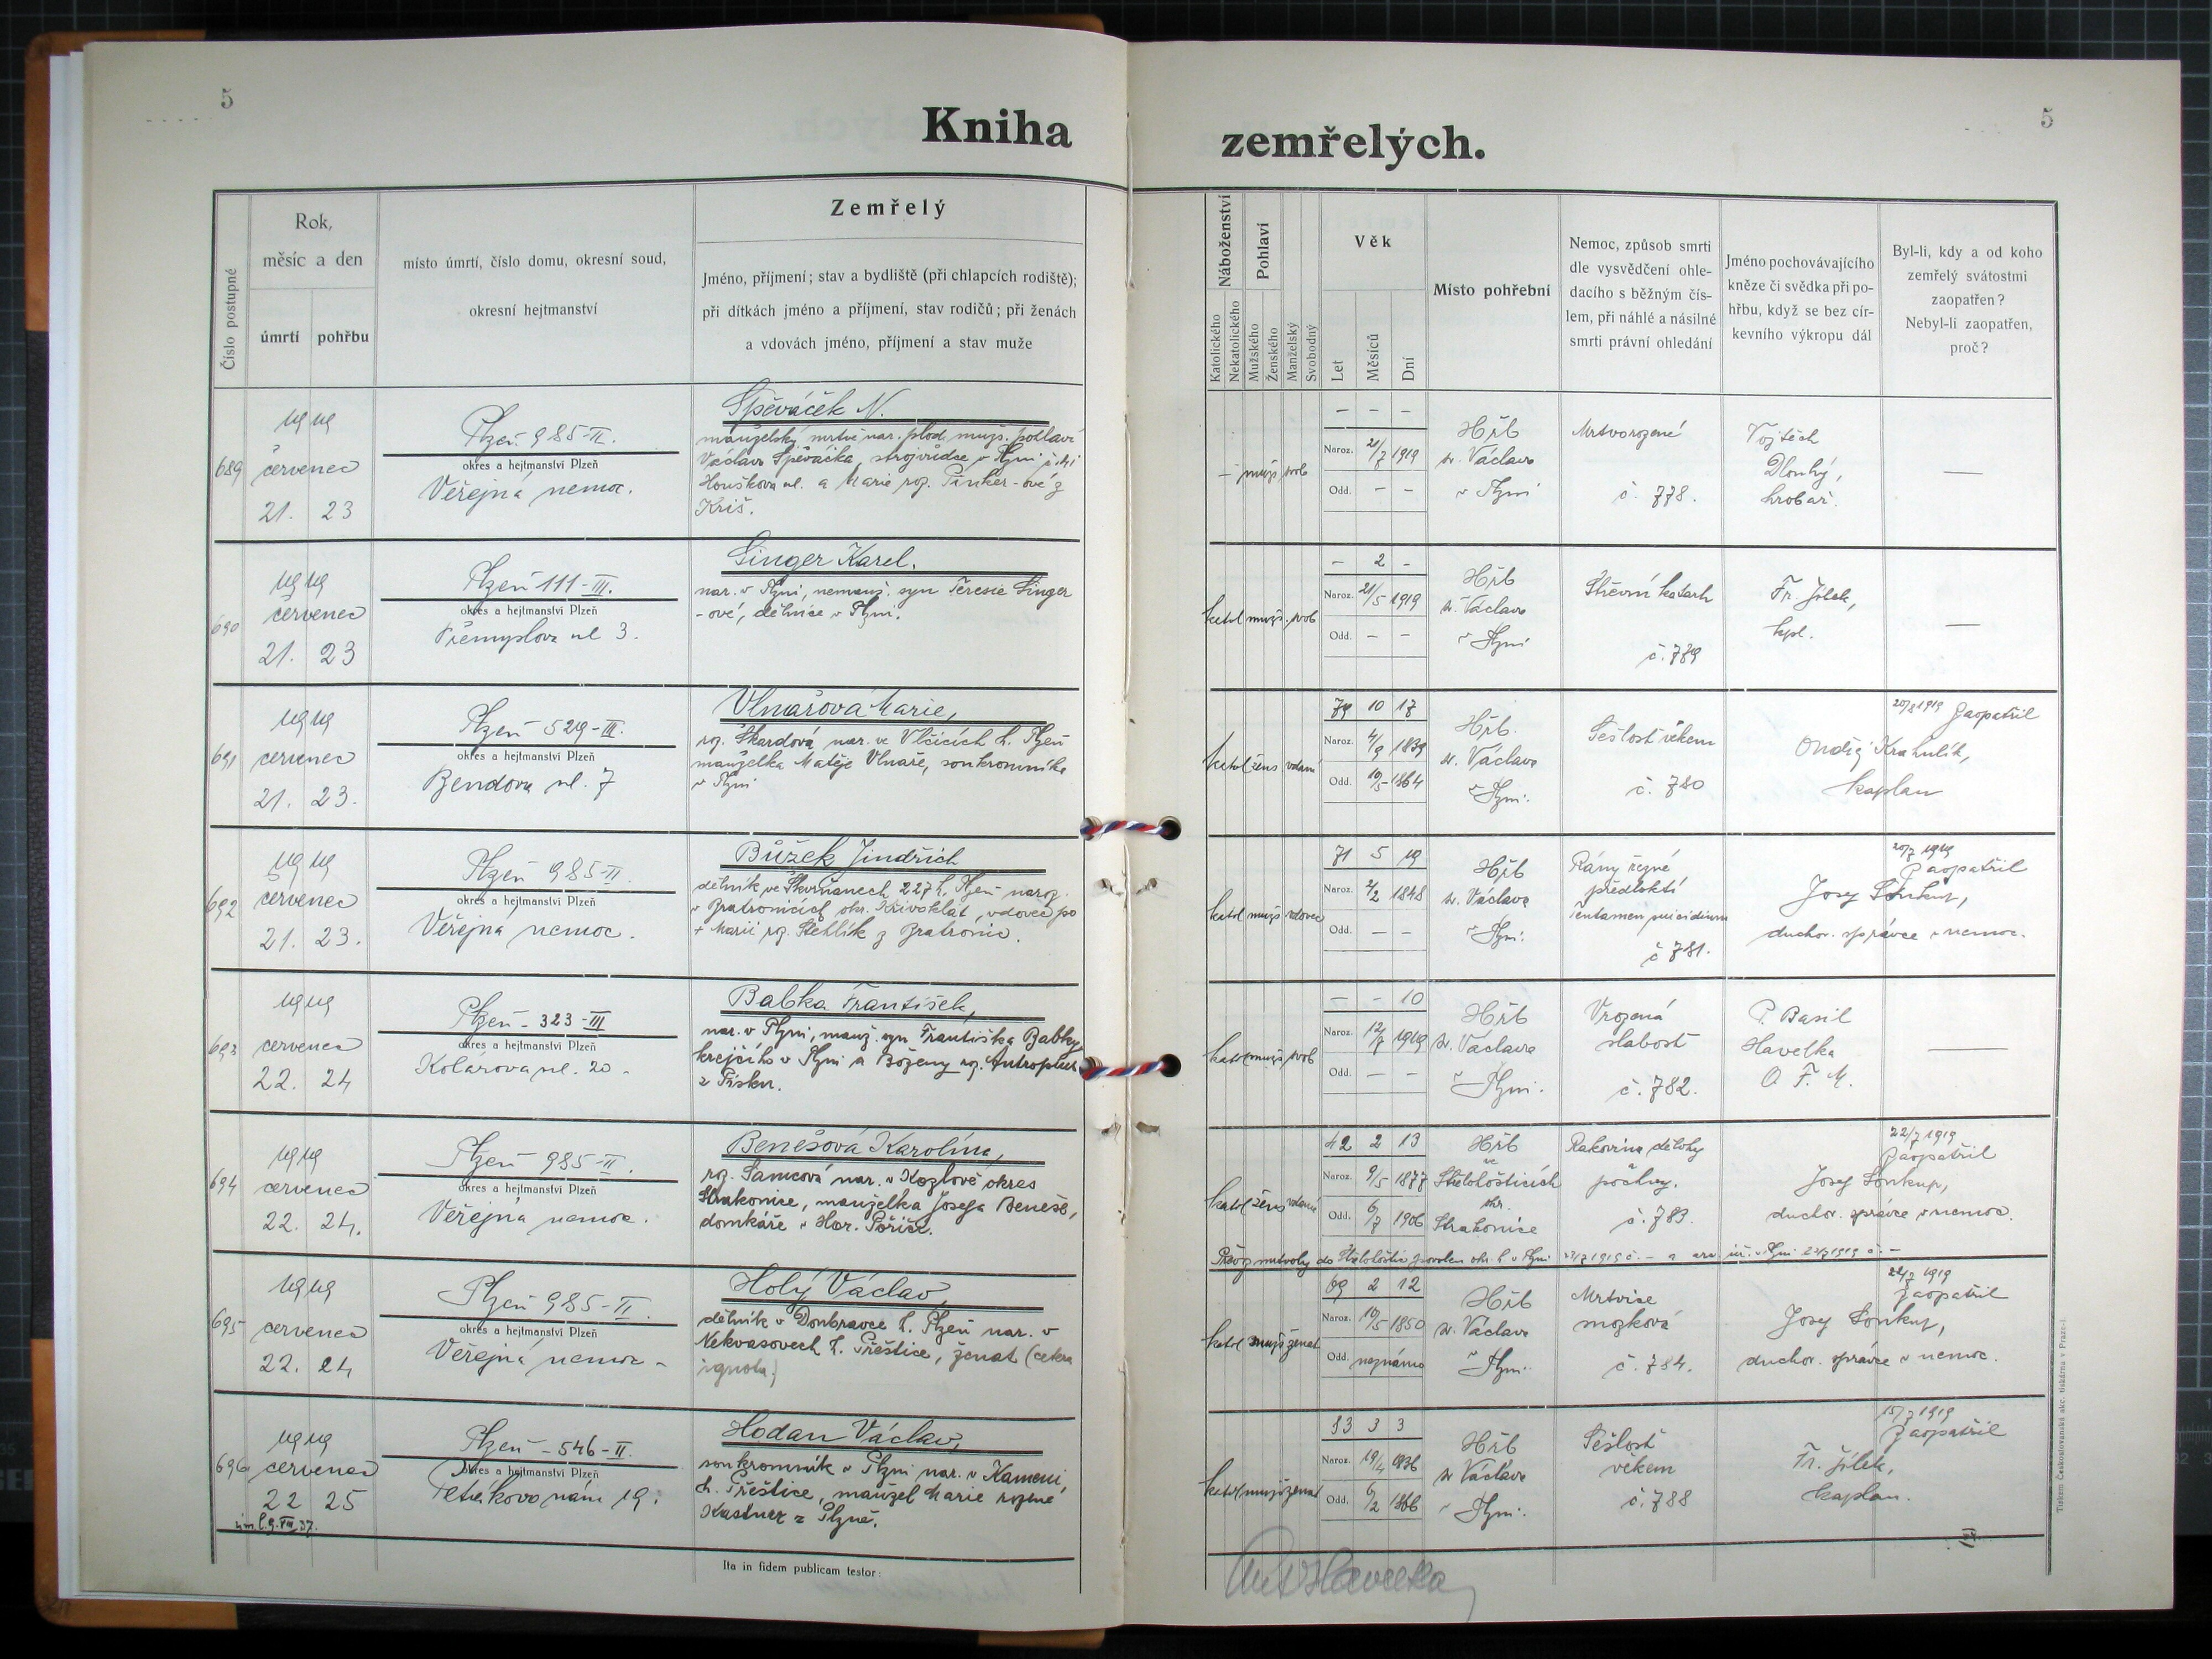 5
5
Kniha zemřelých.
Číslo postupné
Rok,
měsíc a den
úmrtí
pohřbu
místo úmrtí, číslo domu, okresní soud,
okresní hejtmanství
Zemřelý
Jméno, příjmení; stav a bydliště (při chlapcích rodiště);
při dítkách jméno a příjmení, stav rodičů; při ženách
a vdovách jméno, příjmení a stav muže
Náboženství
Katolického
Nekatolického
Pohlaví
Mužského
Ženského
Manželský
Svobodný
Věk
Let
Měsíců
Dní
Místo pohřební
Nemoc, způsob smrti
dle vysvědčení ohle-
dacího s běžným čís-
lem, při náhlé a násilné
smrti právní ohledání
Jméno pochovávajícího
kněze či svědka při po-
hřbu, když se bez cír-
kevního výkropu dál
Byl-li, kdy a od koho
zemřelý svátostmi
zaopatřen?
Nebyl-li zaopatřen,
proč?
689
1919
červenec
21. 23
Plzeň 985-II.
okres a hejtmanství Plzeň
Veřejná nemoc.
Spěváček N.
manželský mrtvě nar. plod. mužs. pohlaví
Václava Spěváčka, strojvůdce v Plzni
Houškova ul. a Marie roz. Pinker-ové z
Kříš.
— mužs svob
— — —
Naroz. 21/7 1919
Odd. — —
Hřb
sv. Václava
v Plzni
Mrtvorozené
č. 778.
Vojtěch
Dlouhý,
hrobař.
—
690
1919
červenec
21. 23
Plzeň 111-III.
okres a hejtmanství Plzeň
Přemyslova ul 3.
Singer Karel.
nar. v Plzni, nemanž. syn Teresie Singer
-ové, dělnice v Plzni.
katol mužs. svob
— 2 -
Naroz. 21/5 1919
Odd. — —
Hřb
sv. Václava
v Plzni
Střevní katarh
č. 789
Fr. Jílek,
kpl.
—
691
1919
červenec
21. 23.
Plzeň 529-III.
okres a hejtmanství Plzeň
Bendova ul. 7
Vlnařová Marie,
roz. Škardová, nar. ve Vlčicích h. Plzeň
manželka Matěje Vlnaře, soukromníka
v Plzni
katol žens vdaná
79 10 17
Naroz. 4/9 1839
Odd. 10/5 1864
Hřb.
sv. Václava
v Plzni.
Sešlost věkem
č. 780
20/7 1919 Zaopatřil
Ondřej Krahulík,
kaplan
692
1919
červenec
21. 23.
Plzeň 985-II.
okres a hejtmanství Plzeň
Veřejná nemoc.
Bůžek Jindřich
dělník ve Skvrňanech 227 h. Plzeň naroz.
v Bratronicích okr. Křivoklát, vdovec po
+ Marii roz. Stehlík z Bratronic.
katol mužs vdovec
71 5 19
Naroz. 2/2 1848
Odd. — —
Hřb
sv. Václava
v Plzni.
Rány řezné
předloktí
Tentamen suicidium
č 781.
20/7 1919
Zaopatřil
Josef Soukup,
duchov. správce v nemoc.
693
1919
červenec
22. 24
Plzeň - 323-III
okres a hejtmanství Plzeň
Kolárova ul. 20.
Babka František,
nar. v Plzni, manž. syn Františka Babky
krejčího v Plzni a Boženy roz.
z Písku.
katol mužs svob
— - 10
Naroz. 12/7 1919
Odd. — —
Hřb
sv. Václava
v Plzni.
Vrozená
slabost
č. 782.
P. Basil
Havelka
O. F. M.
—
694
1919
červenec
22. 24.
Plzeň 985-II.
okres a hejtmanství Plzeň
Veřejná nemoc.
Benešová Karolína,
roz. Samcová nar. v Kozlově okres
Strakonice, manželka Josefa Beneše,
domkáře v Hor. Poříčí.
katol žens vdaná
42 2 13
Naroz. 9/5 1877
Odd. 6/7 1906
Hřb
ve
Střelohošticích
okr.
Strakonice
Rakovina dělohy
pochvy.
č. 783.
22/7 1919
Zaopatřil
Josef Soukup,
duchov. správce v nemoc.
Převoz mrtvoly do Střelohoštic povolen
695
1919
červenec
22. 24
Plzeň 985-II.
okres a hejtmanství Plzeň
Veřejná nemoc -
Holý Václav,
dělník v Doubravce h. Plzeň nar. v
Nekvasovech h. Přeštice, ženat (cetera
ignota)
katol mužs ženat
69 2 12
Naroz. 10/5 1850
Odd. neznámo
Hřb
sv. Václava
v Plzni.
Mrtvice
mozková
č. 784.
22/7 1919
Zaopatřil
Josef Soukup,
duchov. správce v nemoc.
696
1919
červenec
22 25
Plzeň - 546-II.
okres a hejtmanství Plzeň
Petákovo nám 19.
Hodan Václav,
soukromník v Plzni nar. v Kameni,
h. Přeštice, manžel Marie rozené
Kastner z Plzně.
katol mužs ženat
83 3 3
Naroz. 19/4 1836
Odd. 6/2 1866
Hřb
sv Václava
v Plzni.
Sešlost
věkem
č. 788
15/7 1919
Zaopatřil
Fr. Jílek,
kaplan.
Ita in fidem publicam testor:
Tiskem Československá akc. tiskárna v Praze-I.